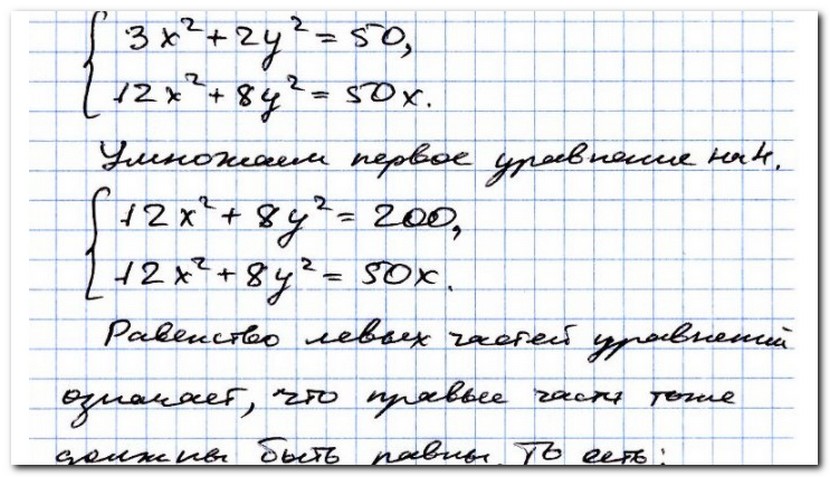 3x² + 2y² = 50,
12x² + 8y² = 50x.
Умножаем первое уравнение на 4.
12x² + 8y² = 200,
12x² + 8y² = 50x.
Равенство левых частей уравнений
означает, что правые части тоже
должны быть равны. То есть: